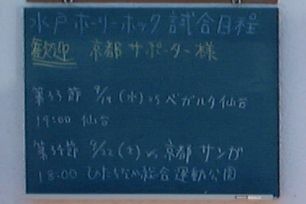 水戸ホーリーホック 試合日程
歓迎 京都サポーター様
第33節 9/19 (水) vs ベガルタ仙台
19:00 仙台
第34節 9/22 (土) vs 京都サンガ
18:00 ひたちなか総合運動公園